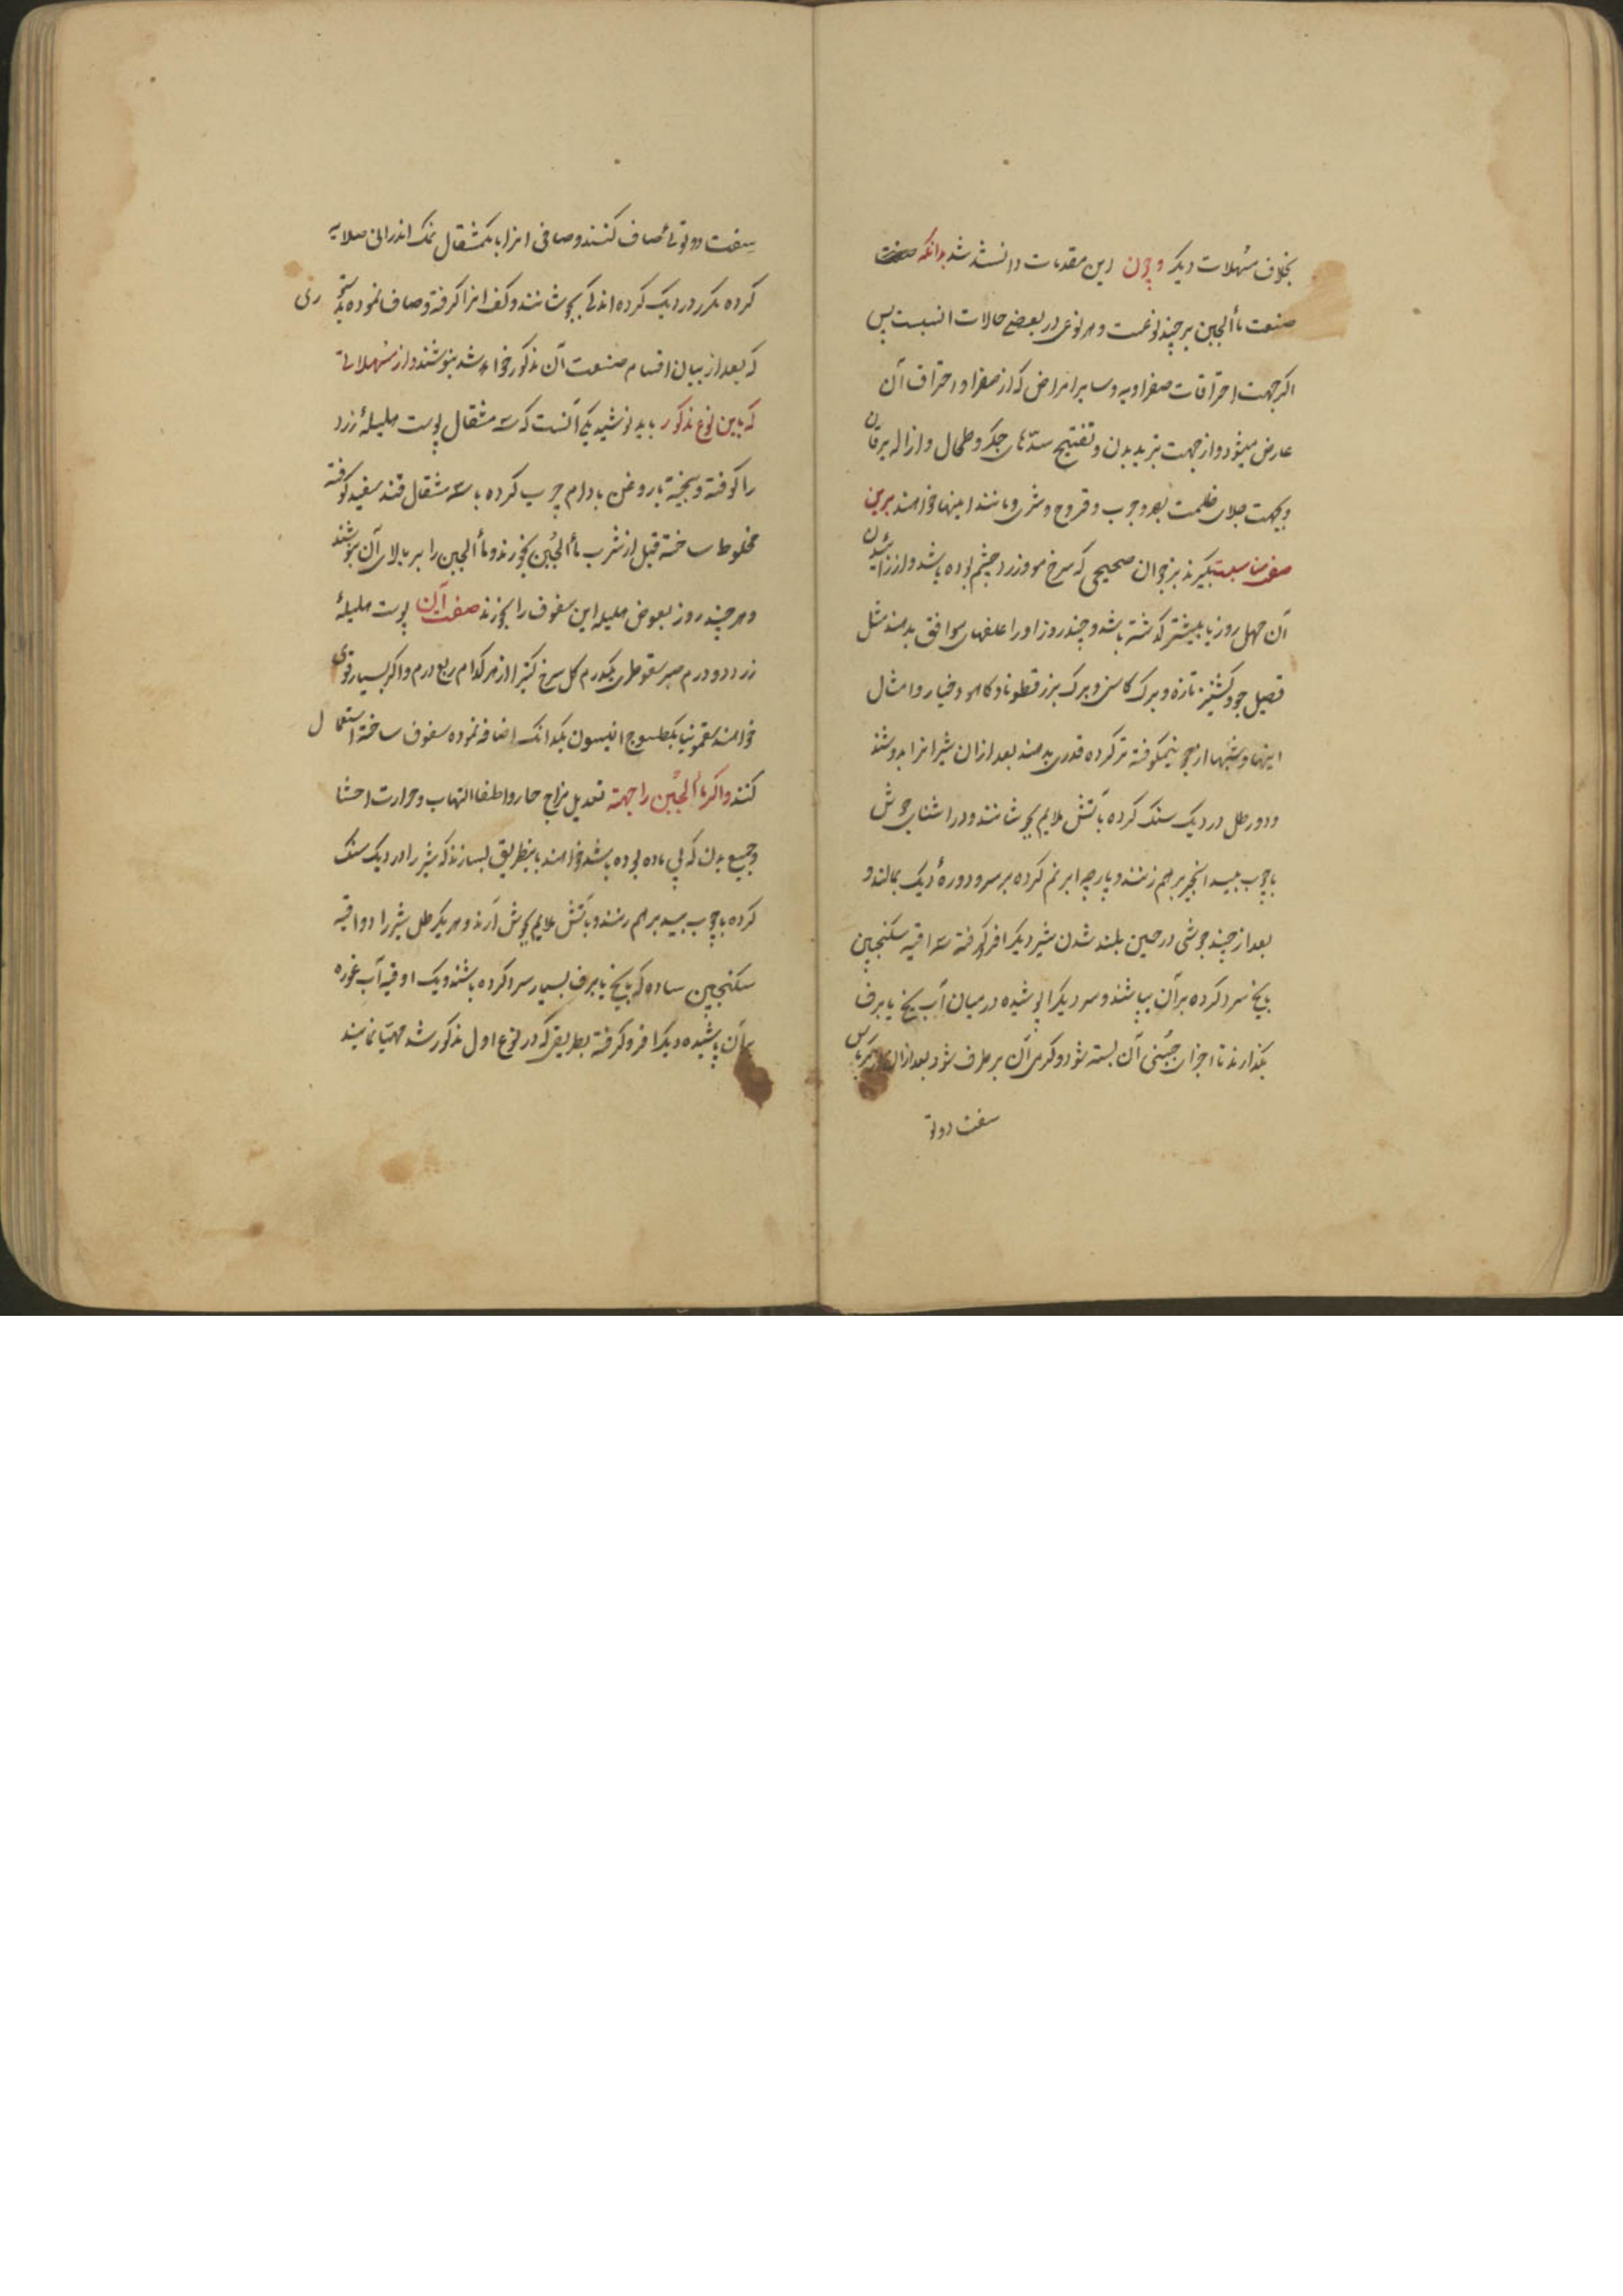 بخلاف مسهلات دیکر و چون این مقدمات دانسته شد بدانکه
صنعت ماٗالجبن بر چند نوعست و هر نوعی در بعضی حالات انسبست پس
اکر جهت احتراقات صفراویه و سایر امراض که از صفرا و احتراق آن
عارض میشود و از جهت تبرید بدن و تفتیح سدّهای جکر و طحال و ازاله یرقان
و بجهت جلای ظلمت بصر و جرب و قروح و شری و مانند اینها خواهند برین
صفت بکیرند بز جوان صحیحی که سرخ مو و زرد چشم بوده باشد و از زائیدن
آن چهل روز یا بیشتر کذشته باشد و چند روز او را علفهای موافق بدهند مثل
قصیل جو و کشنیز تازه و برک کاسنی و برک بزرقطونا و کاهو و خیار و امثال
اینها و شبها از جو نیمکوفته تر کرده قدری بدهند بعد ازان شیر انرا بدوشند
و دو رطل در دیک سنک کرده بآتش ملایم بجوشانند و در اثنای جوش
با چوب بید انجیر برهم زنند و پارچه ابر نم کرده بر سر و دورهٔ دیک بمالند و
بعد از چند جوشی در حین بلند شدن شیر دیکرا فرو کرفته سه اوقیه سکنجبین
بایخ سرد کرده بر آن بپاشند و سر دیکرا پوشیده در میان آب یخ یا برف
بکذارند تا اجزای جبنی آن بسته شود و کرمی آن بر طرف شود بعد ازان از کرباس
سفت دوتو
سفت دوتوئی صاف کنند و صافی انرا با یکمثقال نمک اندرانی صلایه
کرده مکرر در دیک کرده اندکی بجوشانند و کف انرا کرفته و صاف نموده بدستوری
که بعد از بیان اقسام صنعت آن مذکور خواهد شد بنوشند و از مسهلاتی
که باین نوع مذکور باید نوشید یکی آنست که سه مثقال پوست هلیلهٔ زرد
را کوفته و بیخته با روغن بادام چرب کرده با سه مثقال قند سفید کوفته
مخلوط ساخته قبل از شرب ماٗالجبن بخورند و ماٗالجبن را بر بالای آن بنوشند
و هر چند روز بعوض هلیله این سفوف را بخورند صفت آن پوست هلیلهٔ
زرد دو درم صبر سقوطری یکدرم کل سرخ کتیرا از هر کدام ربع درم و اکر بسیار قوی
خواهند سقمونیا یکطسوج انیسون یکدانک اضافه نموده سفوف ساخته استعمال
کنند و اکر ماٗالجبن را جهة تعدیل مزاج حار و اطفا التهاب و حرارت احشا
و جمیع بدن که بی ماده بوده باشد خواهند باینطریق بسازند که شیر را در دیک سنک
کرده با چوب بید برهم زنند و بآتش ملایم بجوش آرند و هر یکرطل شیر را دو اوقیه
سکنجبین ساده که بایخ یا برف بسیار سرد کرده باشند و یک اوقیه آب غوره
بر آن پاشیده دیکرا فرو کرفته بطریقی که در نوع اول مذکور شد مهیّا نمایند